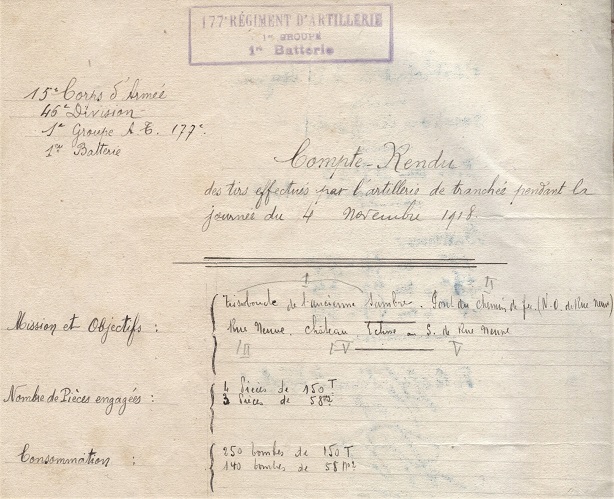 177e RÉGIMENT D'ARTILLERIE
1er GROUPE
1re Batterie
15e Corps d'Armée
46e Division
1er Groupe A. T. 177e
1re Batterie
Compte-Rendu
des tirs effectués par l'artillerie de tranchée pendant la
journée du 4 Novembre 1918.
I II
de l'ancienne Sambre. Pont du chemin de fer. (N.O. de Rue Neuve)
Mission et Objectifs :
Rue Neuve. Château S. de Rue Neuve
III IV V
Nombre de Pièces engagées :
4 Pièces de 150 T
3 Pièces de 58 n°2
Consommation :
250 bombes de 150 T
140 bombes de 58 n°2